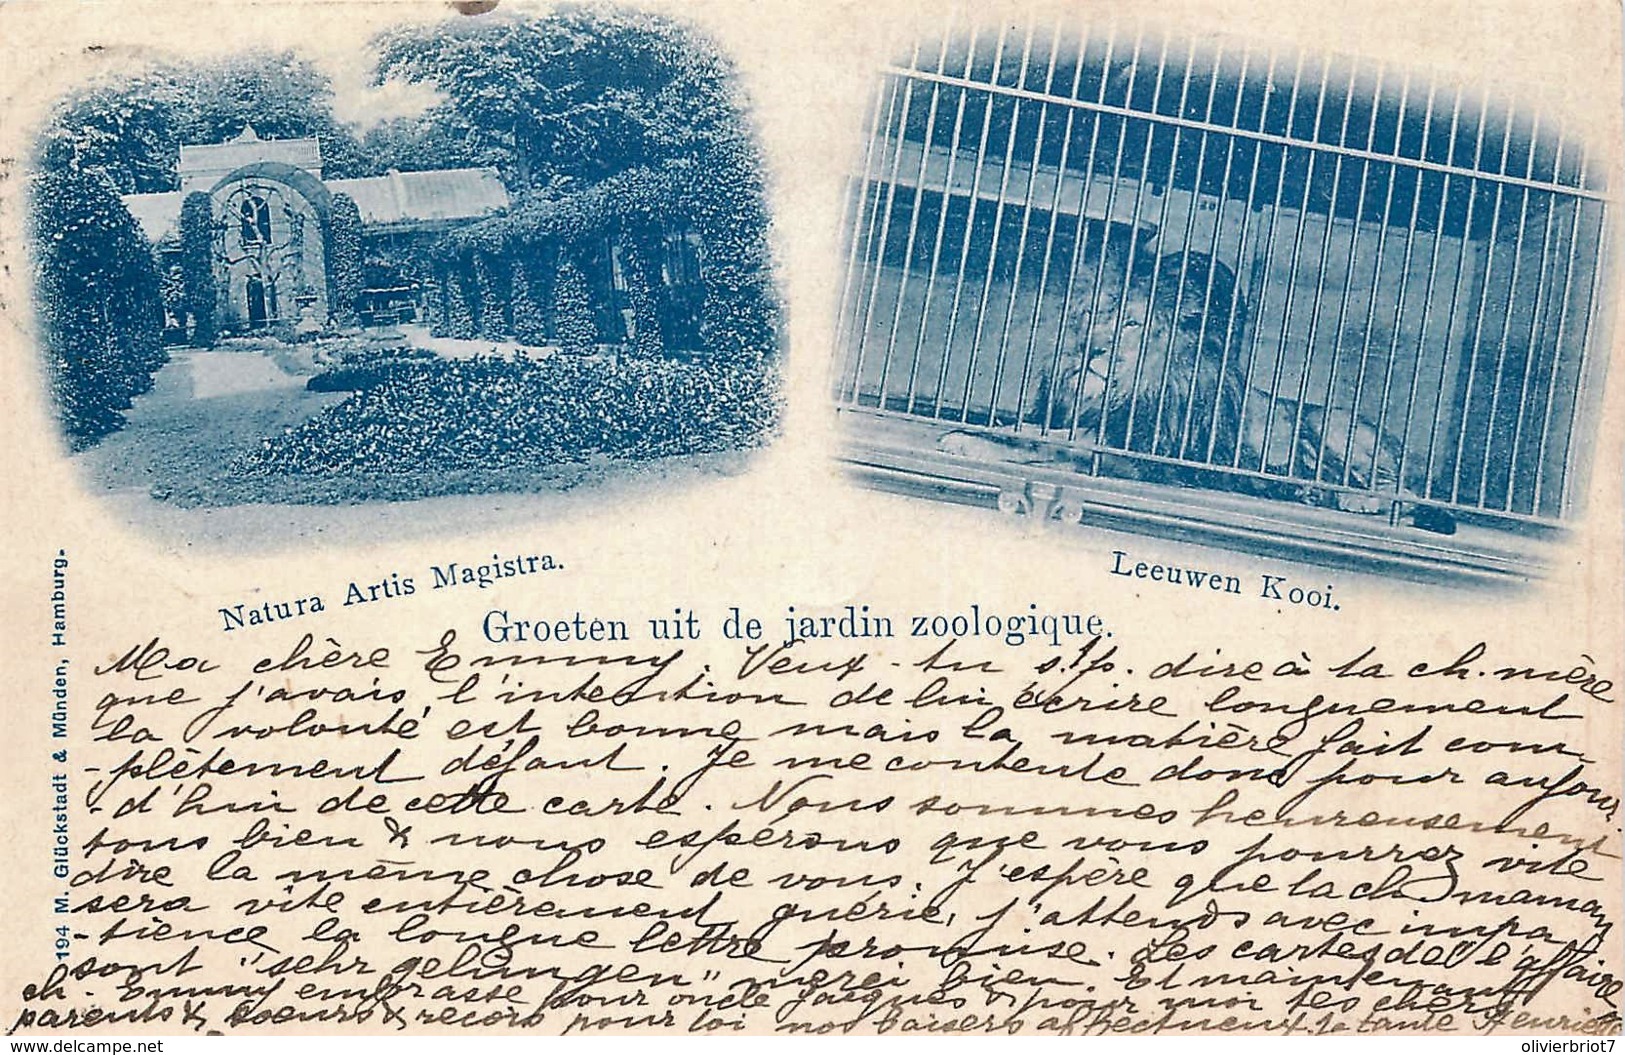 Natura Artis Magistra.
Leeuwen Kooi.
Groeten uit de jardin zoologique.
194 M. Glückstadt & Münden, Hamburg.
Ma chère Emmy. Veux-tu s.l.p. dire à ta ch. mère
que j'avais l'intention de lui écrire longuement
la volonté est bonne mais la matière fait com-
-plètement défaut. Je me contente donc pour aujour
-d'hui de cette carte. Nous sommes heureusement
tous bien & nous espérons que vous pourrez vite
dire la même chose de vous. J'espère que la ch. maman
sera vite entièrement guérie, j'attends avec impa
-tience la longue lettre promise. Les cartes de l'affaire
sont "sehr gelungen" merci bien. Et maintenant
ch. Emmy embrasse pour oncle Jacques & pour moi tes chers
parents & soeurs & reçois pour toi nos baisers affectueux. ta tante Henriette
delcampe.net
olivierbriot7